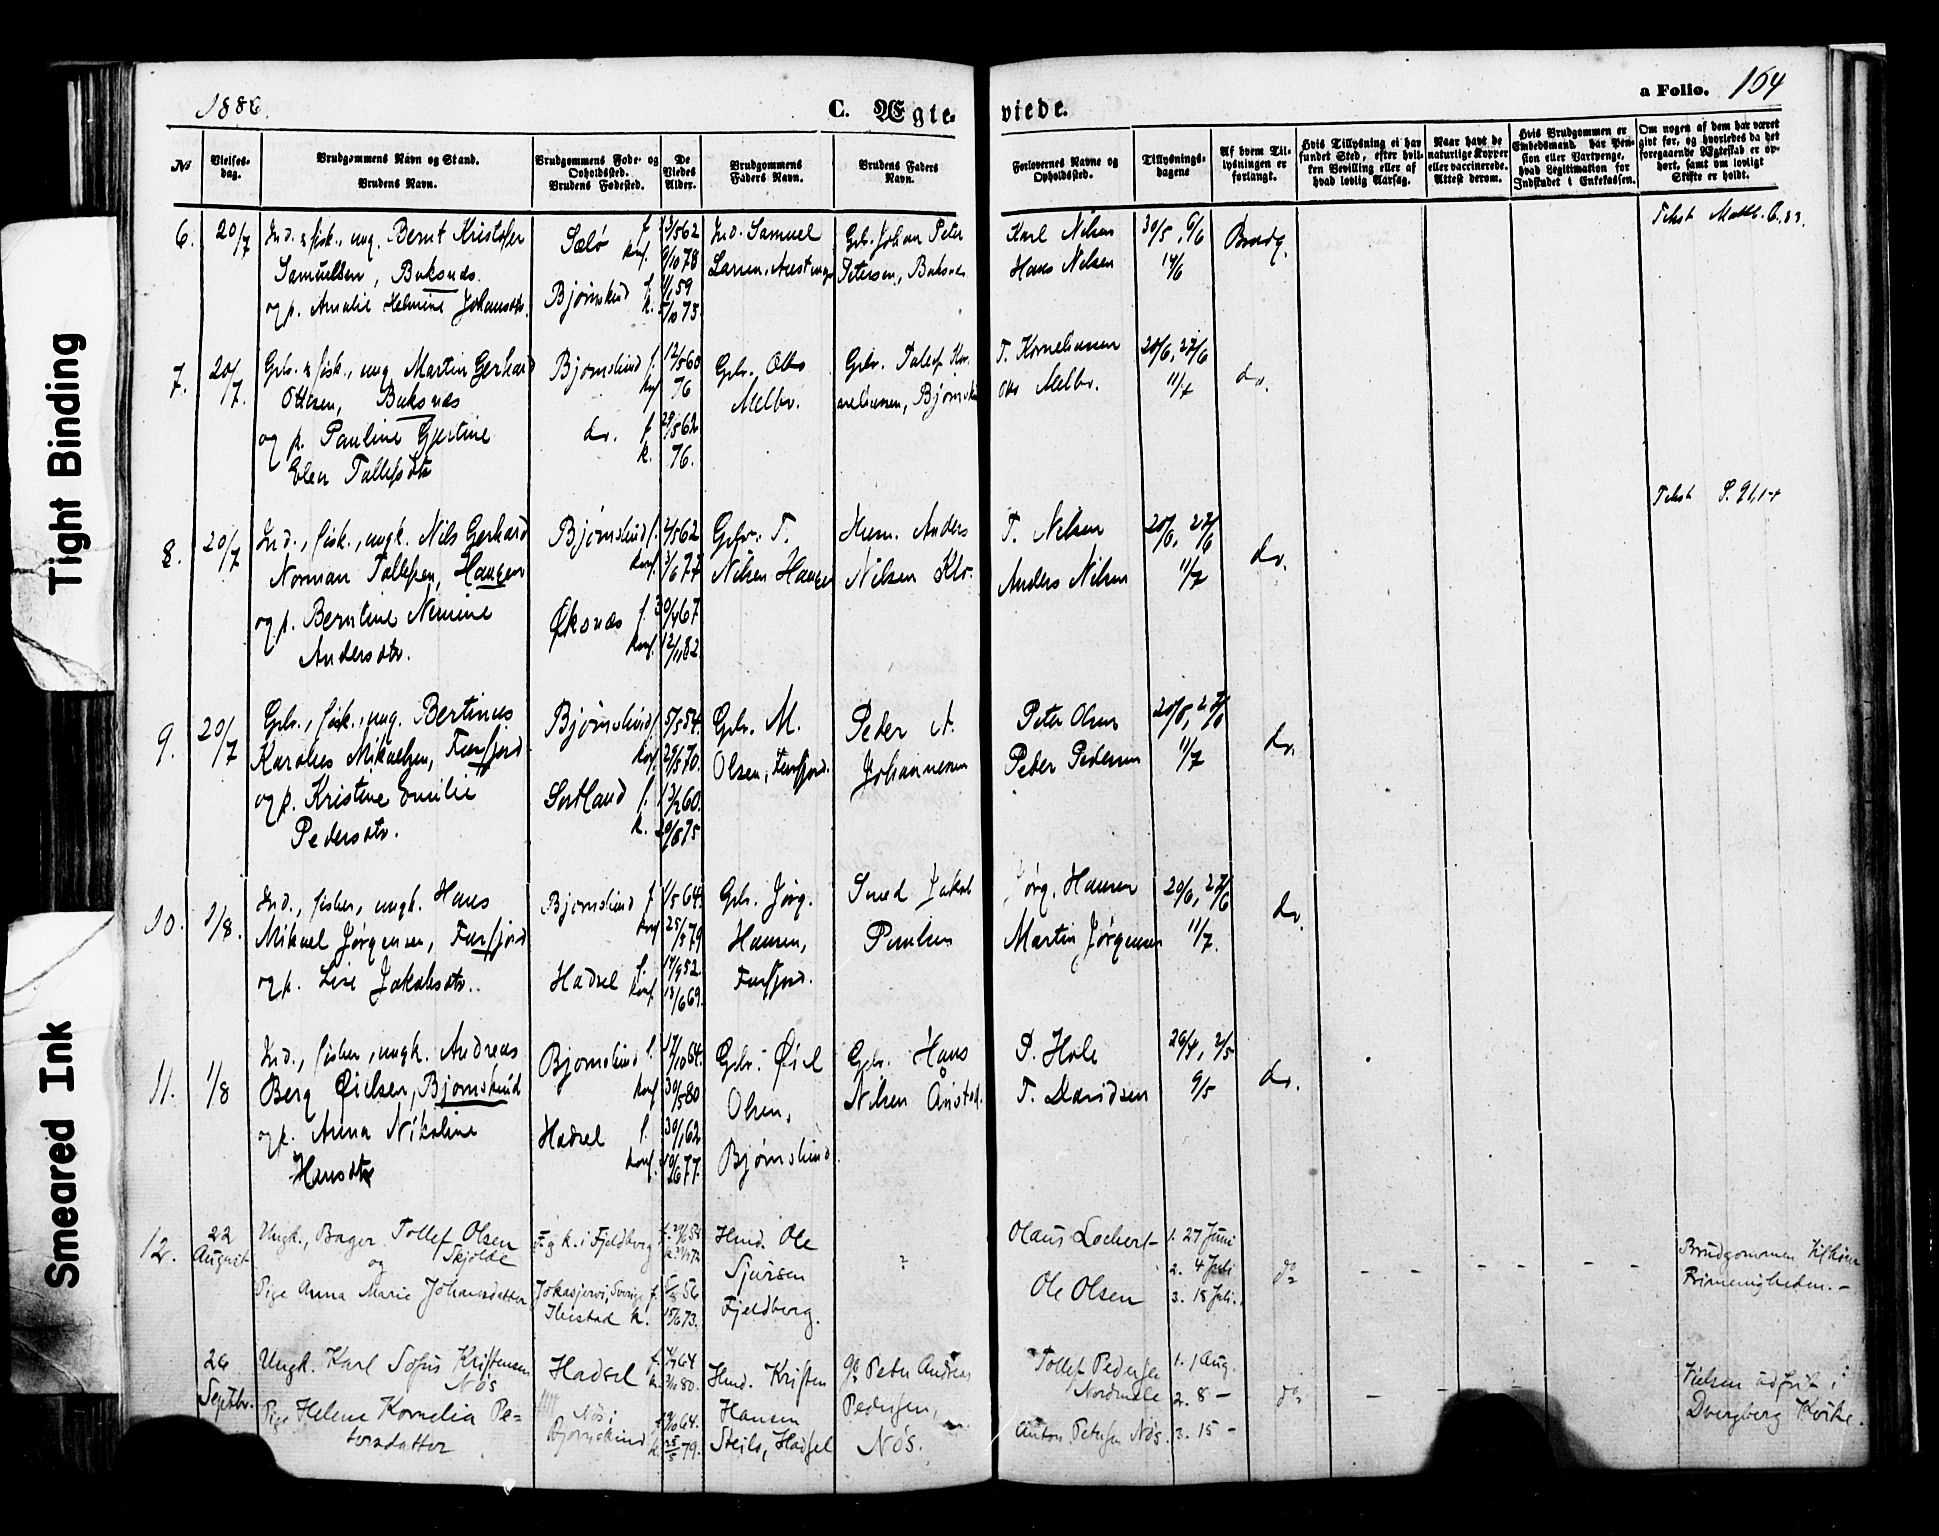 Tight Binding
Smeared Ink
1886.
C. Ægte-
viede.
a Folio. 164
No
Vielses-
dag.
Brudgommens Navn og Stand.
Brudens Navn.
Brudgommens Føde- og
Opholdssted.
Brudens Fødested.
De
Viedes
Alder.
Brudgommens
Faders Navn.
Brudens Faders
Navn.
Forlovernes Navne og
Opholdssted.
Tillysnings-
dagene
Af hvem Til-
lysningen er
forlangt.
Hvis Tillysning ei har
fundet Sted, efter hvil-
ken Bevilling eller af
hvad lovlig Aarsag.
Naar havt de
naturlige Kopper
eller vaccinerede.
Attest derom.
Hvis Brudgommen er
Embedsmand har Pen-
sion eller Vartpenge,
hvad Legitimation for
Indskudet i Enkekassen.
Om nogen af dem har været
gift før, og hvorledes da det
foregaaende Ægteskab er op-
hørt, samt om lovligt
Skifte er holdt.
6. 20/7
Ind. & fisk., ung. Bernt Kristofer
Samuelsen, Buksnes
og p. Amalie Helmine Johansdtr.
Sælø f.
konf. 9/10 78
Bjørnskind f. 1/1 59
k. 5/10 75
Ind. Samuel
Larsen,
Gbr. Johan Peter
Petersen, Buksnes
Karl Nilsen
Hans Nilsen
30/5, 6/6
14/6
Brudg.
Tekst Matth. 6,33
7. 20/7.
Gbr. & fisk., ung. Martin Gerhard
Ottesen, Buksnes
og p. Pauline Gjertine
Elen Tollefsdtr
Bjørnskind f. 12/5 60
konf 76
do. f. 29/5 62
k. 76.
Gbr. Otto
Melbo.
Gbr. Tollef Kor-
neliussen, Bjørnsk
T. Korneliussen
Otto Melbo.
20/6, 27/6
11/7
do.
Tekst S. 91,1-4
8. 20/7
Ind., fisk., ungk. Nils Gerhard
Norman Tollefsen, Haugen
og p. Berntine Nimine
Andersdtr.
Bjørnskind f. 2/5 62
konf. 3/6 77
Øksnes f. 30/4 67
konf. 12/11 82
Gbr. T.
Nilsen Haugen
Husm. Anders
Nilsen Klo.
T. Nilsen
Anders Nilsen
20/6, 27/6
11/7
do.
9. 20/7
Gbr., fisk., ung. Bertinus
Karolius Mikaelsen, Forfjord
og p. Kristine Emilie
Pedersdtr.
Bjørnskind f. 5/5 54.
konf. 29/5 70.
Sortland f. 13/2 60.
k. 29/8 75
Gbr. M.
Olsen, Forfjord.
Peder A.
Johannesen
Peter Olsen
Peder Pedersen
20/6, 27/6
11/7
do.
10. 1/8.
Ind., fisker, ungk. Hans
Mikael Jørgensen, Forfjord
og p. Lise Jakobsdtr.
Bjørnskind f. 1/5 64.
konf 25/5 79
Hadsel f. 17/9 52.
konf. 13/6 69.
Gbr. Jørg.
Hansen,
Forfjord.
Smed Jakob
Paulsen
Jørg. Hansen
Martin Jørgensen
20/6, 27/6
11/7.
do.
11. 1/8
Ind., fisker, ungk. Andreas
Berg Øielsen, Bjørnskind
og p. Anna Nikoline
Hansdtr
Bjørnskind f. 17/10 64.
konf 30/5 80
Hadsel f. 30/1 62
konf. 10/6 77.
Gbr. Øiel
Olsen,
Bjørnskind
Gbr. Hans
Nilsen Ånstad.
P. Hole
T. Davidsen
26/4, 2/5
9/5
do.
12. 22
August
Ungk., Bager Tollef Olsen
Skjolde
og
Pige Anna Marie Johansdatter
F. g k. i Fjeldberg
Jokasjervi, Sverige f. 56
Ibestad k. 15/6 73.
Husm. Ole
Sjursen
Fjeldberg.
?
Olaus Lockert
Ole Olsen
1. 27 Juni
2. 4 Juli
3. 18 Juli.
do
Brudgommen tilhører
Frimenigheden. -
26
Septbr.
Ungk. Karl Sofus Kristensen
Nøs
Pige Helene Kornelia Pe-
tersdatter
Hadsel f. 64
k. 80.
Nøs i
Bjørnskind
f. 64.
k. 25/5 79.
Husm. Kristen
Hansen
Steilo, Hadsel
Peter Andreas
Pedersen,
Nøs.
Tollef Pedersen
Nordmele
Anton Petersen Nøs.
1. 1 Aug.
2. 8 -
3. 15 -
do
Vielsen udført i
Dverberg Kirke.